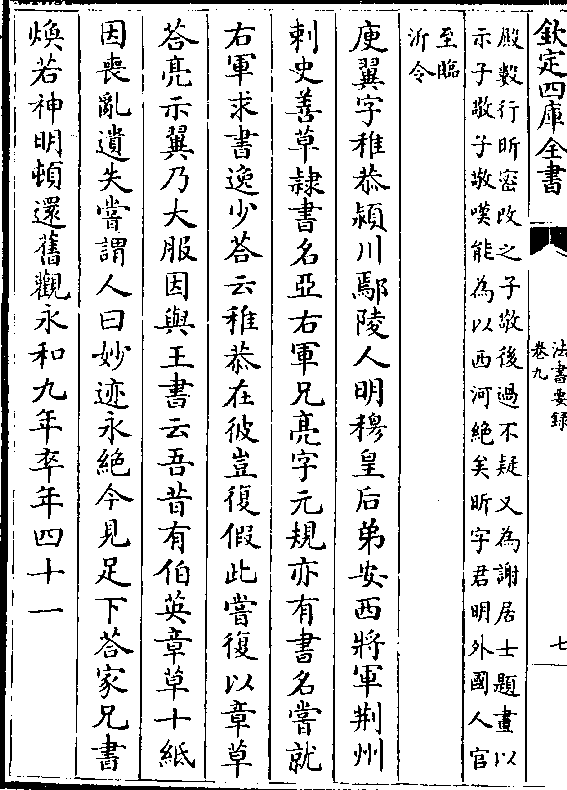 欽定四庫全書
法書要録
卷九
七
殿數行昕密改之子敬後過不疑又為謝居士題畫以
示子敬子敬嘆能為以西河絶矣昕字君明外國人官
至臨
沂令
庾翼字稚恭潁川鄢陵人明穆皇后弟安西將軍荆州
刺史善草隸書名亞右軍兄亮字元規亦有書名嘗就
右軍求書逸少荅云稚恭在彼豈復假此嘗復以章草
荅亮示翼乃大服因與王書云吾昔有伯英章草十紙
因喪亂遺失嘗謂人曰妙迹永絶今見足下荅家兄書
煥若神明頓還舊觀永和九年卒年四十一